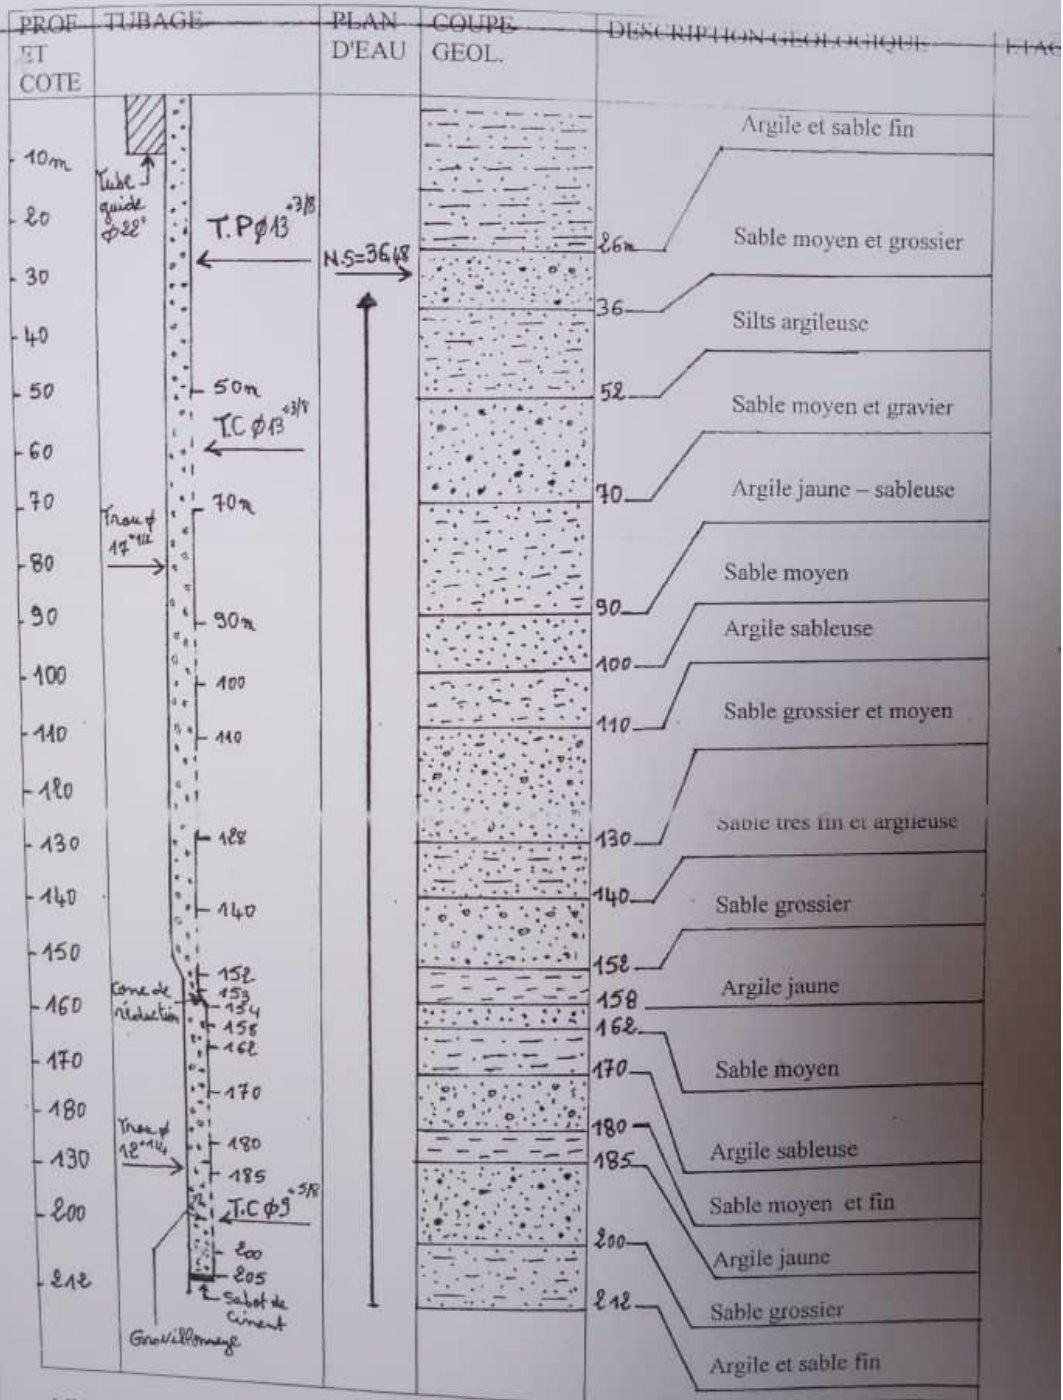 PROF
ET
COTE
TUBAGE
PLAN
D'EAU
COUPE
GEOL.
DESCRIPTION GEOLOGIQUE
ETAG
10m
20
30
40
50
60
70
80
90
100
110
120
130
140
150
160
170
180
130
200
212
Tube
guide
φ22"
T.P φ13"3/8
50m
T.C φ13"3/8
70m
Trou φ
17"1/2
90m
100
110
128
140
152
153
154
158
162
170
180
185
200
205
Cone de
réduction
Trou φ
12"1/4
T.C φ9"5/8
Sabot de
Ciment
Gravillonnage
N.S=36,48
26m
36
52
70
90
100
110
130
140
152
158
162
170
180
185
200
212
Argile et sable fin
Sable moyen et grossier
Silts argileuse
Sable moyen et gravier
Argile jaune – sableuse
Sable moyen
Argile sableuse
Sable grossier et moyen
Sable très fin et argileuse
Sable grossier
Argile jaune
Sable moyen
Argile sableuse
Sable moyen et fin
Argile jaune
Sable grossier
Argile et sable fin